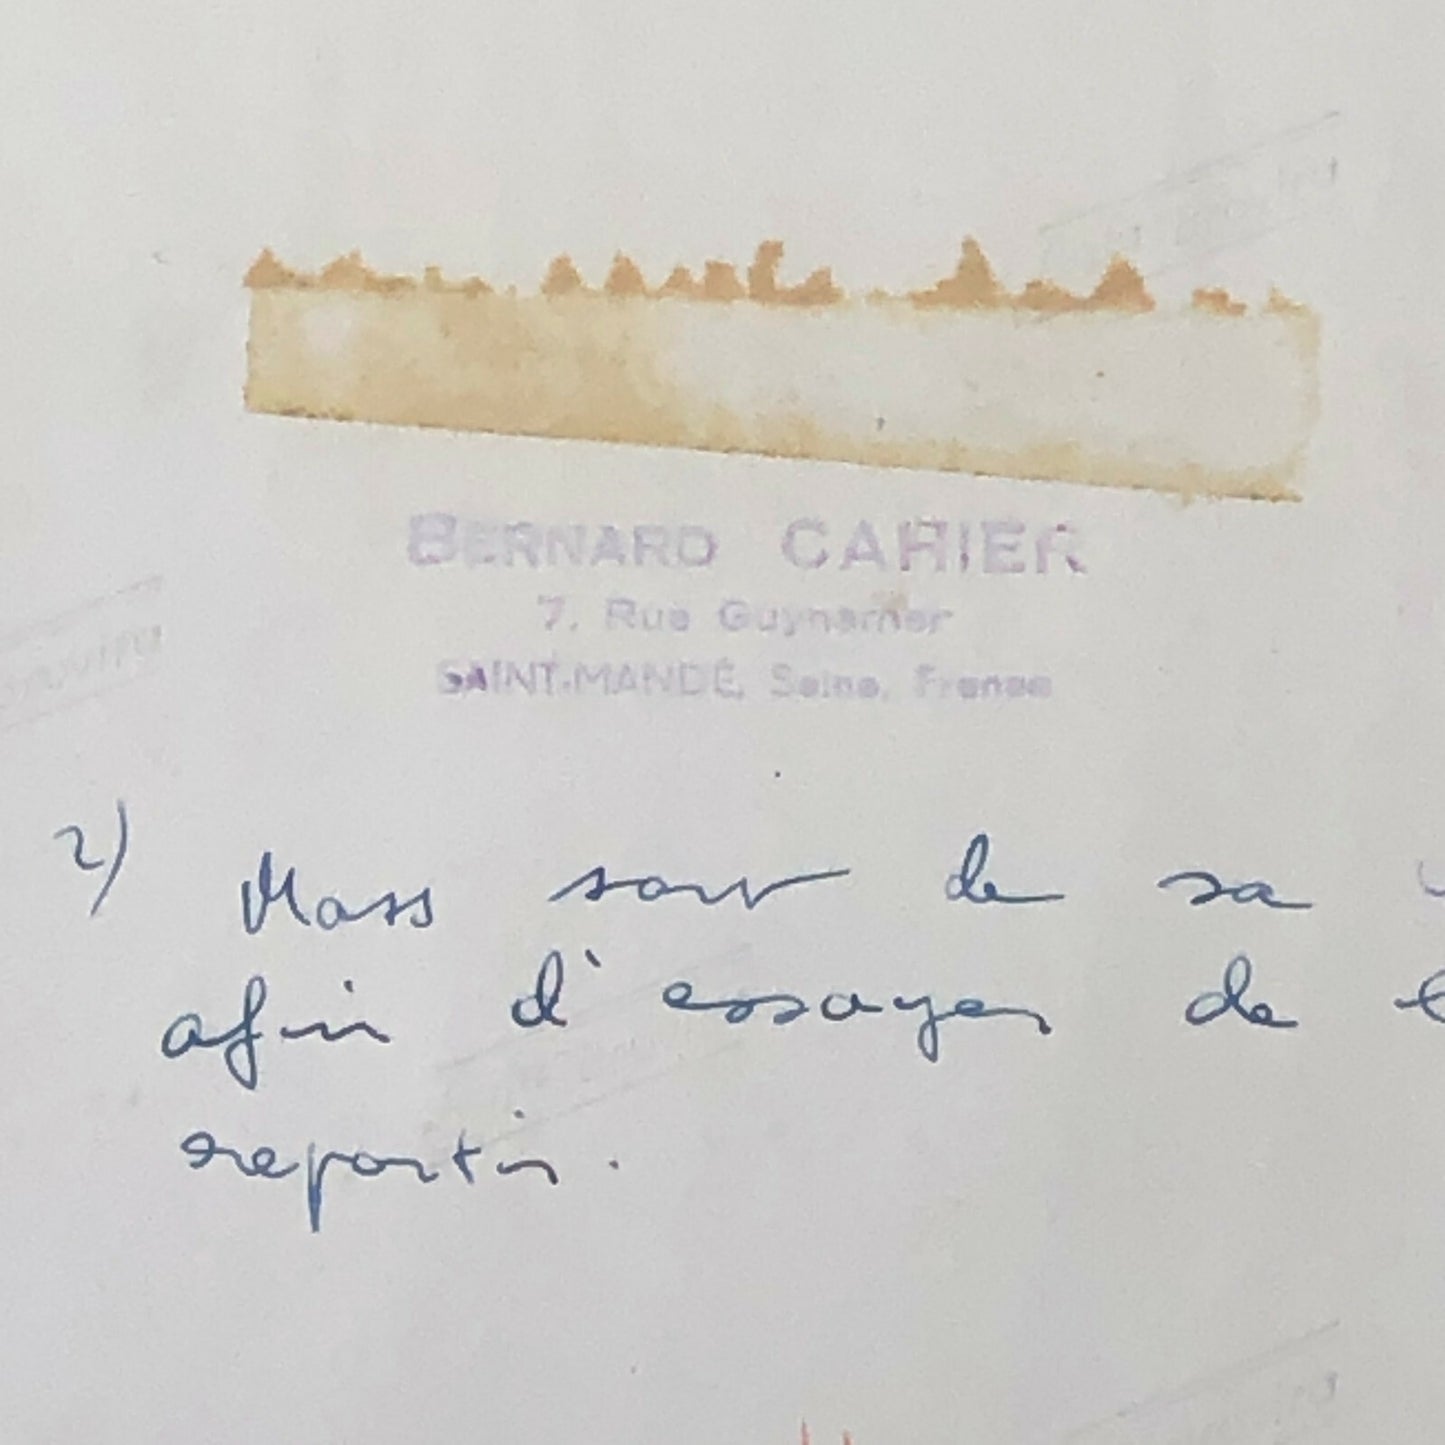 BERNARD CAHIER
7, Rue Guynemer
SAINT-MANDÉ, Seine, France
2) Mass sort de sa
afin d'essayer de
repartir.